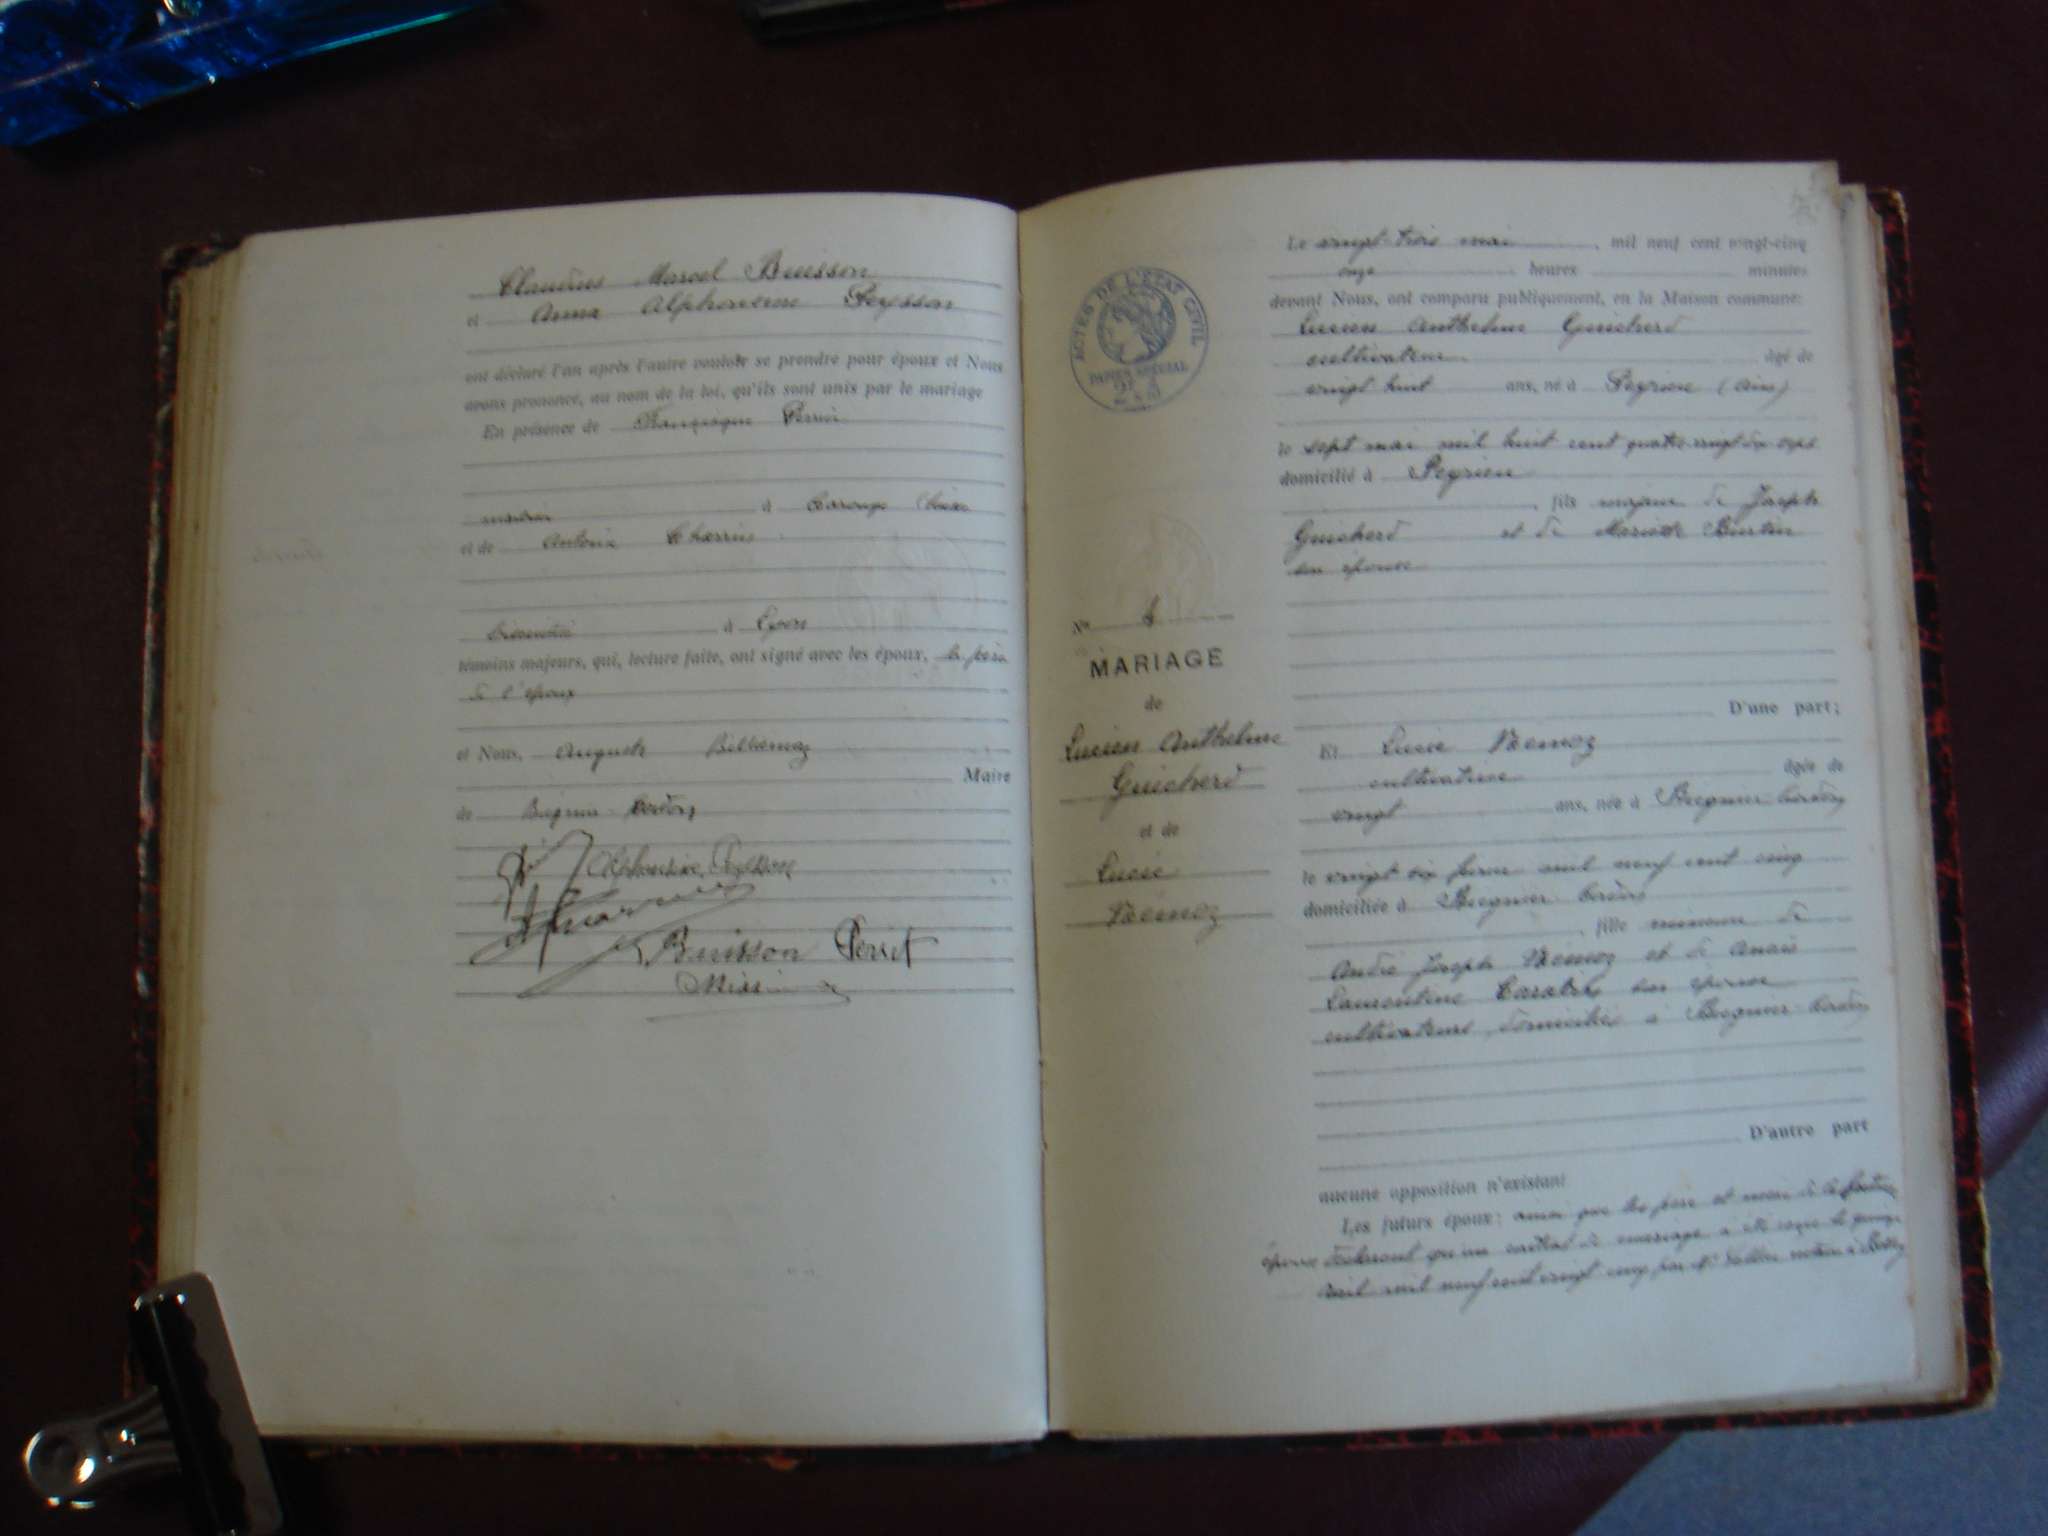 Claudius Marcel Buisson
et Anna Alphonsine Peysson
ont déclaré l'un après l'autre vouloir se prendre pour époux et Nous
avons prononcé, au nom de la loi, qu'ils sont unis par le mariage
En présence de Françisque Perrin
à
et de Antoine Charrin
à Lyon
témoins majeurs, qui, lecture faite, ont signé avec les époux, le père
de l'époux
et Nous, Auguste Billemaz
Maire
de Brégnier-Cordon
Alphonsine Peysson
Buisson Perret
ACTES DE L'ÉTAT CIVIL
PAPIER SPÉCIAL
No
MARIAGE
de
Lucien Anthelme
Guicherd
et de
Lucie
Némoz
Le vingt-trois mai, mil neuf cent vingt-cinq
onze heures minutes
devant Nous, ont comparu publiquement, en la Maison commune:
Lucien Anthelme Guicherd
cultivateur âgé de
vingt huit ans, né à Peyrieu (Ain)
le sept mai mil huit cent quatre vingt dix sept
domicilié à Peyrieu
, fils majeur de Joseph
Guicherd et de Mariette Burtin
son épouse
D'une part;
Et Lucie Némoz
cultivatrice âgée de
vingt ans, née à Brégnier Cordon
le vingt six mil neuf cent cinq
domiciliée à Brégnier-Cordon
, fille mineure de
André Joseph Némoz et de Anaïs
Lamontine son épouse
cultivateurs, domiciliés à Brégnier-Cordon
D'autre part
aucune opposition n'existant
Les futurs époux: ainsi que les père et mère de la future
épouse déclarent qu'un contrat de mariage a été reçu le quinze
avril mil neuf cent vingt cinq par Me notaire à